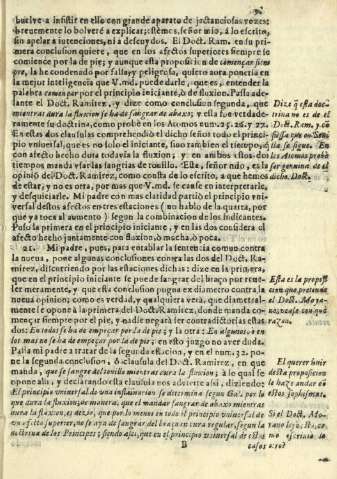 buelve a insistir en ello con grande aparato de jactanciosas vozes;
brevemente lo bolverè a explicar; estème, señor mio, á lo escrito,
sin apelar a intenciones, ni a descuydos. El Doct. Ram. en su pri
mera conclusion quiere, que en los afectos superiores siempre se
comience por la de pie; y aunque esta proposicion de començar siem
pre, la he condenado por falsa, y peligrosa, quiero aora ponerla en
la mejor inteligencia que V.md. puede darle, que es, entender la
palabra començar por el principio iniciante, ò de fluxion. Passa ade-
lante el Doct. Ramirez, y dize como conclusion segunda, que
mientras dura la fluxion se ha de sangrar de abaxo; y esta fue verdade-
ramente su doctrina, como probè en los Atomos num. 23. 26. y 27.
En estas dos clausulas comprehendiò el dicho señor todo el princi-
pio vniversal, que es no solo el iniciante, sino tambien el tiempo, que
con afecto hecho dura todavia la fluxion; y en ambos estos
tiempos manda vsar las sangrias de tovillo. Esta, señor mio, es la
opinion del Doct. Ramirez, como consta de lo escrito, a que hemos
de estar, y no es otra, por mas que V.md. se canse en interpretarle,
y desquiciarle. Mi Padre con mas claridad partiò el principio vni-
versal destos afectos en tres estaciones (no hablo de la quarta, por
que ya toca al aumento) segun la combinacion de los indicantes.
Puso la primera en el principio iniciante, y en las dos considera el
afecto hecho juntamente con fluxion, ò mucha, ò poca.
21. Mi padre, pues, para entablar la sentencia comun contra
la nueva, pone algunas conclusiones contra las dos del Doct. Ra-
mirez, discurriendo por las estaciones dichas: dize en la primera,
que en el principio iniciante se puede sangrar del braço por reve-
ler meramente, y que esta conclusion pugna ex diametro contra la
nueva opinion; como es verdad, y qualquiera verà, que diametral-
mente se opone à la primera del Doct. Ramirez, donde manda co-
mençar siempre por el pie, y nadie negarà ser contradictorias estas
dos: En todos se ha de empeçar por la de pie; y la otra: En algunos, ò en
los mas no se ha de empeçar por la de pie; en esto juzgo no aver duda.
Passa mi Padre a tratar de la segunda estacion, y en el num. 32. po-
ne la segunda conclusion, ò clausula del Doct. Ramirez, en que
manda, que se sangre del tovillo mientras dura la fluxion; à lo qual se
opone alli, y declarando esta clausula nos advierte assi, diziendo:
El principio vniversal de una inflamacion se determina segun Gal. por lo
que dura la fluxion; de manera, que el mandar sangrar de abaxo mientras
dura la fluxion, es dezir, que por lo menos en todo el principio vniversal de
un afecto superior, no se aya de sangrar del braço en cura regular, segun la
doctrina de los Principes; siendo assi, que en el principio vniversal de estos
B
Dize q̃ esta doc
trina no es de el
D. Ram. y cõ
fiessa que no
se sigue. En
los Atomos probè
ser genuina de el
dicho. Doct.
Esta es la proposi
cion que pretende
el Doct. Moya-
no; vease con què
razon.
El querer huir
desta proposicion
le haze andar cõ
estos sophismas.
Si el Doct. Mo-
yano lo es, &c. co
mo exercita
casos otro?